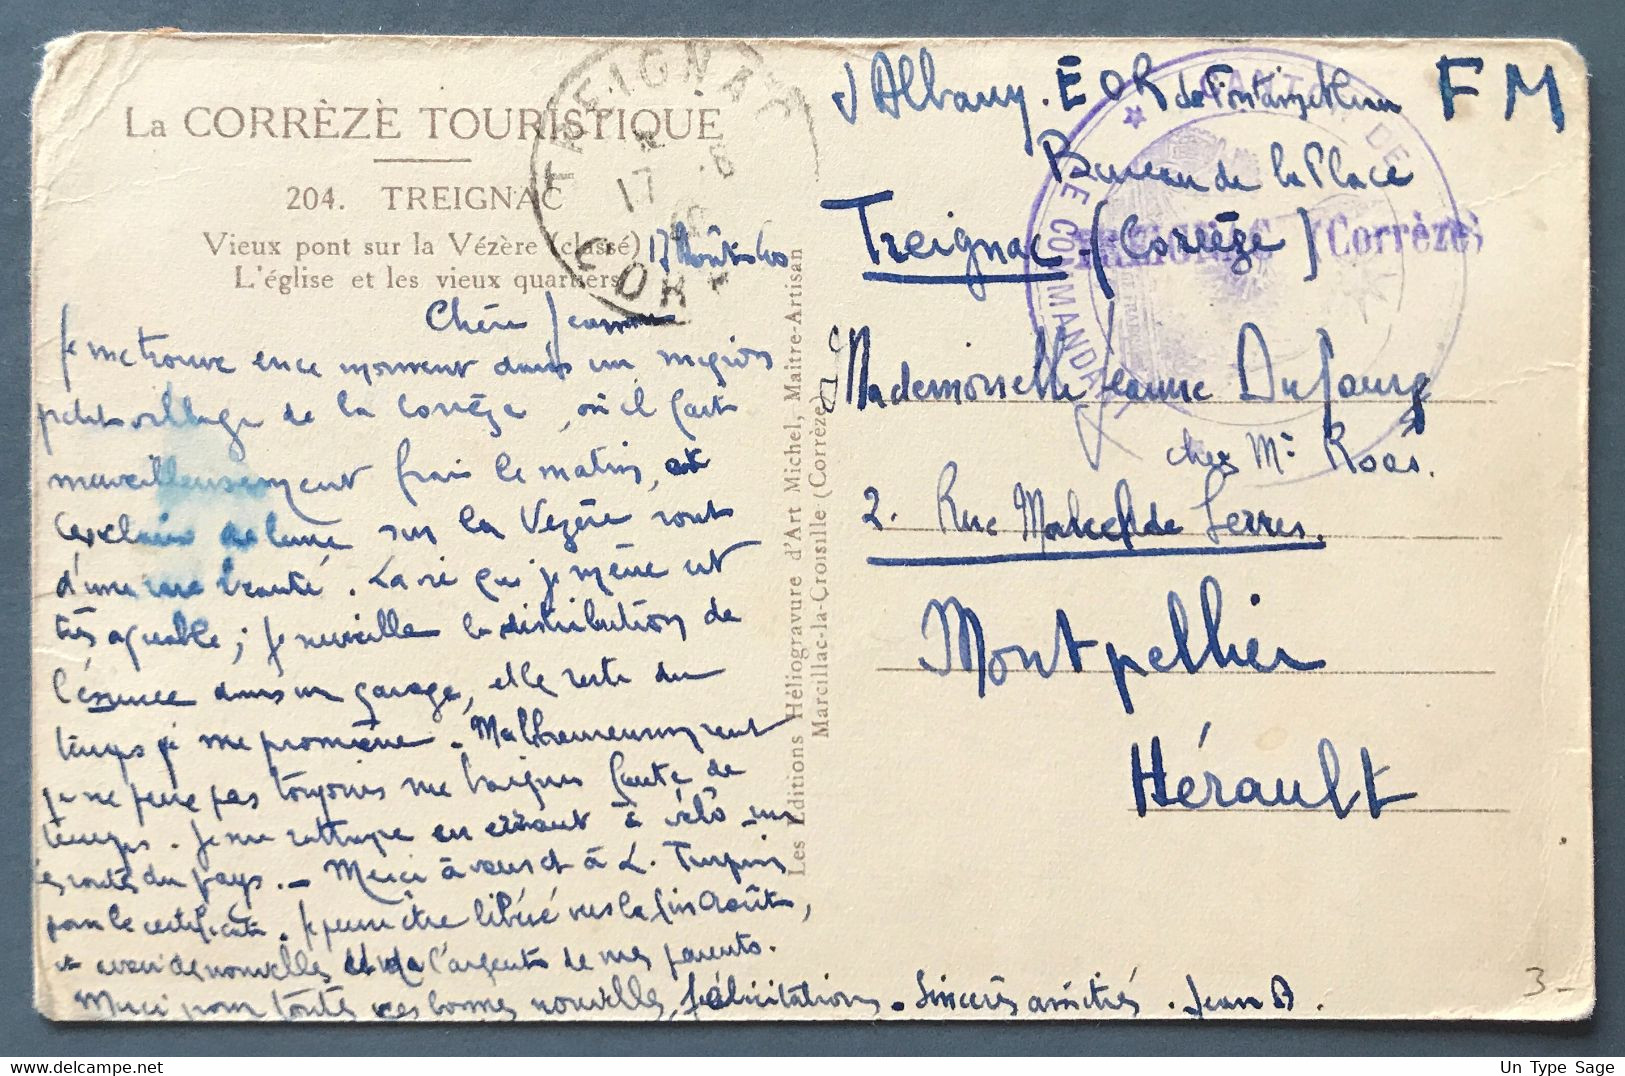 La CORRÈZE TOURISTIQUE
204. TREIGNAC
Vieux pont sur la Vézère (classé)
L'église et les vieux quartiers
TREIGNAC
17 -8
40
CORR
17 Août 40
Chère Jeanne
Je me trouve en ce moment dans un mignon
petit village de la Corrèze, où il fait
merveilleusement frais le matin, et
les clairs de lune sur la Vézère sont
d'une rare beauté. La vie que je mène est
très agréable; je surveille la distribution de
l'essence dans un garage, et le reste du
temps je me promène. Malheureusement
je ne peux pas toujours me baigner faute de
temps. Je me rattrape en errant à vélo sur
les routes du pays. - Merci à vous et à L. Turpin
pour le certificat. Je pense être libéré vers la fin Août,
et avoir de nouvelles et de l'argent de mes parents.
Merci pour toutes ces bonnes nouvelles, félicitations. Sincères amitiés. Jean D.
Les Editions Héliogravure d'Art Michel, Maître-Artisan
Marcillac-la-Croisille (Corrèze)
J Albany. EOR de Fontainebleau
FM
Bureau de la Place
Treignac - (Corrèze)
CANTON DE
LE COMMANDANT
TREIGNAC (Corrèze)
Mademoiselle Jeanne Dufourg
chez Mr Roos.
2. Rue de Serres.
Montpellier
Hérault
3-
Un Type Sage